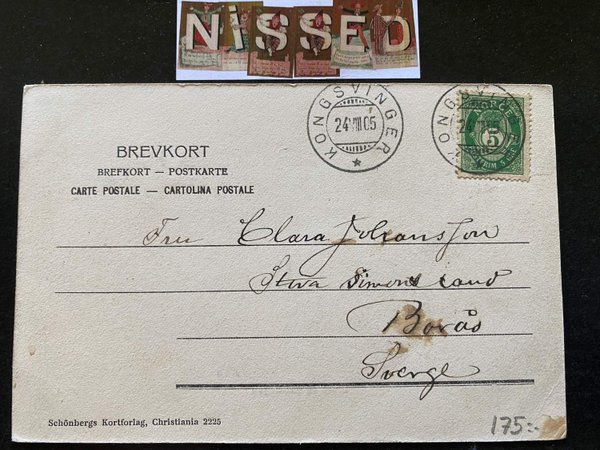 NISSED
KONGSVINGER
24 VIII 05
KONGSVIN
NORGE
5
BREVKORT
BREFKORT — POSTKARTE
CARTE POSTALE — CARTOLINA POSTALE
Fru Clara Johansson
Stora Simonsland
Borås
Sverge
Schönbergs Kortforlag, Christiania 2225
175:-